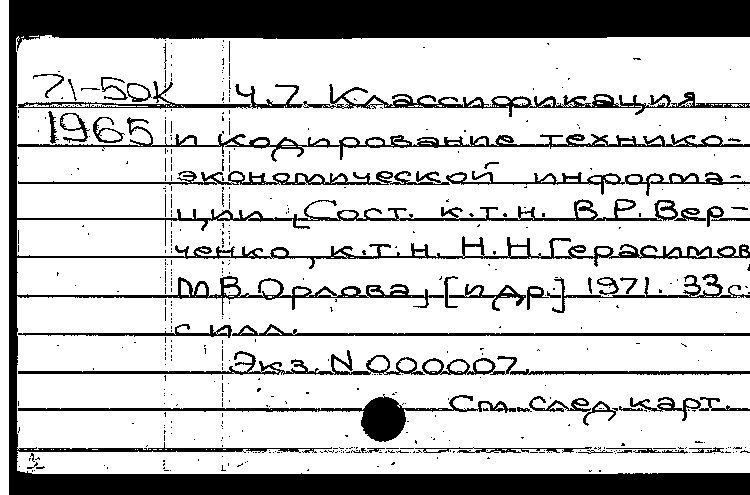 71-50к Ч.7. Классификация
1965 и кодирование технико-
экономической информа-
ции [Сост. к.т.н. В.Р.Вер-
ченко, к.т.н. Н.Н.Герасимов,
М.В.Орлова, [и др.] 1971. 33с.
с илл.
Экз. N 000007.
См. след. карт.